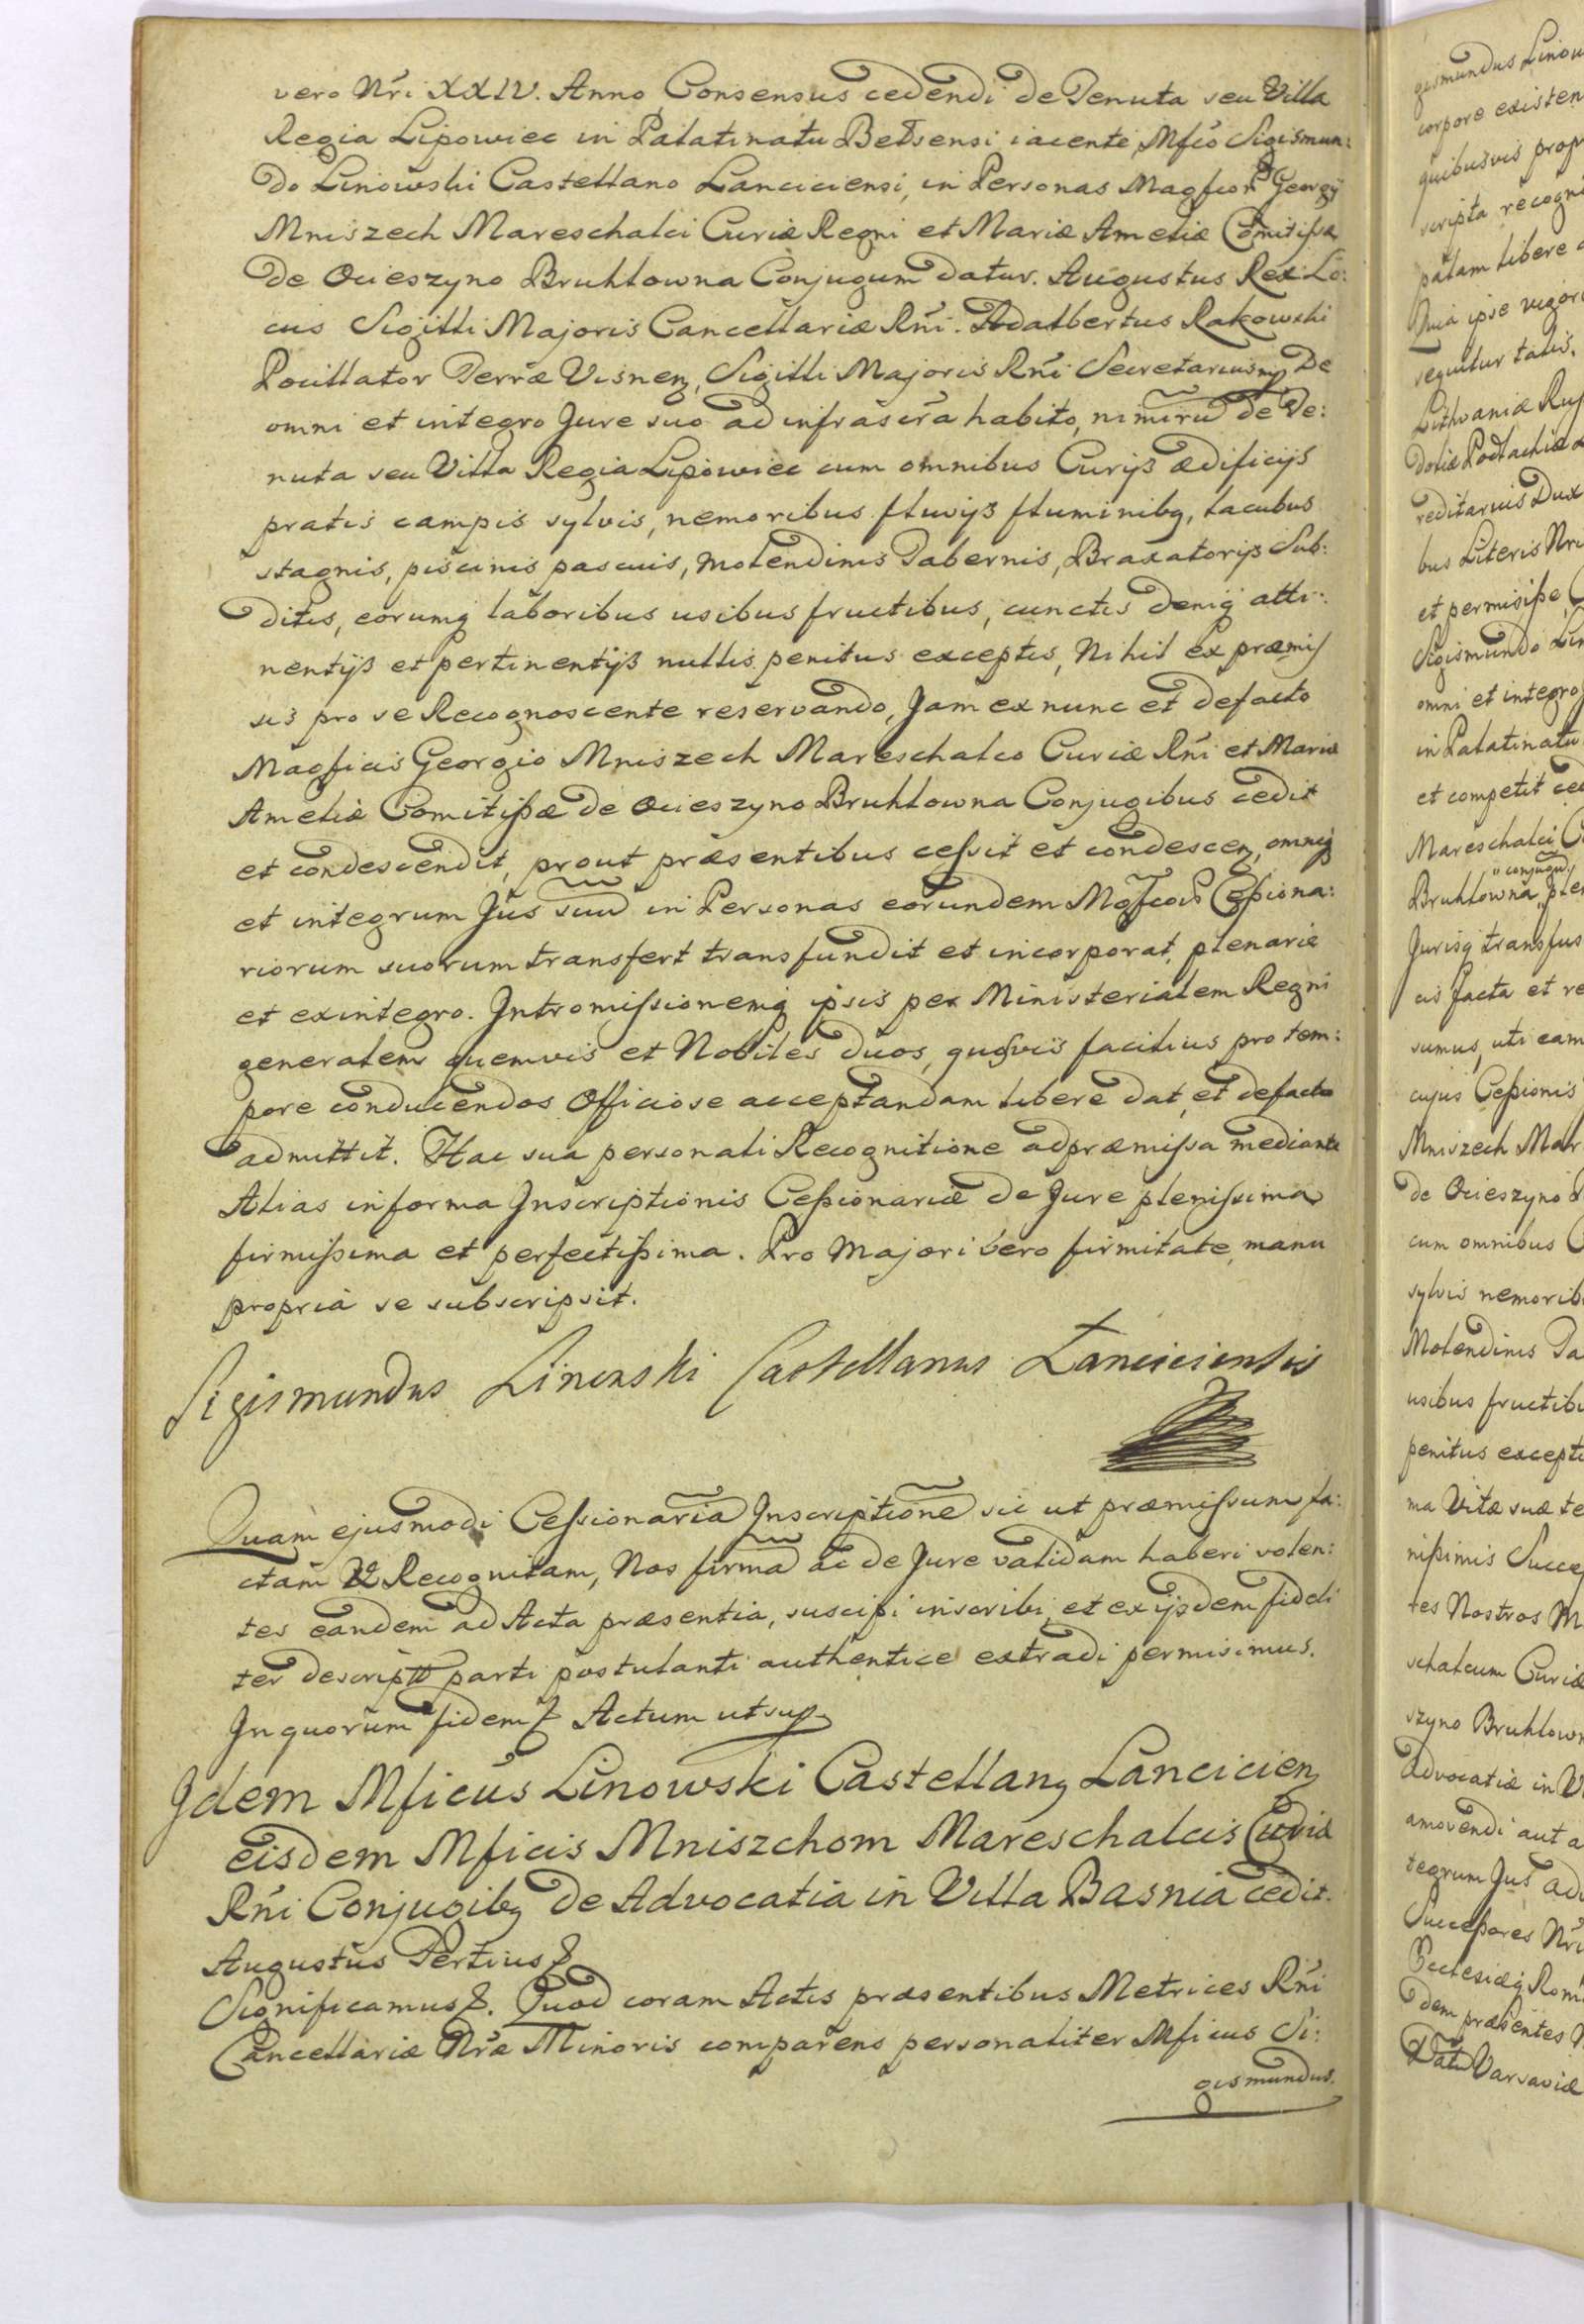 vero Nři XXIV. Anno Consensus cedendi de Tenuta seu Villa
Regia Lipowiec in Palatinatu Belzensi iacente, Mfco Sigismun:
do Linowski Castellano Lanciciensi, in Personas Magfcor Georgÿ
Mniszech Mareschalci Curiæ Regni et Mariæ Ameliæ Comitissæ
de Ocieszyno Bruhlowna Conjugum datur. Augustus Rex. Lo:
cus Sigilli Majoris Cancellariæ Rñi. Adalbertus Rakowski
Pocillator Terræ Visnen, Sigilli Majoris Rñi Secretarius mp De
omni et integro Jure suo ad infrascrã habito, nimirũ de Te:
nuta seu Villa Regia Lipowiec cum omnibus Curijs ædificijs
pratis campis sylvis, nemoribus fluvijs fluminibq, lacubus
stagnis, piscinis pascuis, Molendinis Tabernis, Braxatorijs Sub:
ditis, eorumq laboribus usibus fructibus, cunctis deniq atti:
nentijs et pertinentijs nullis penitus exceptis, Nihil ex præmis
sis pro se Recognoscente reservando, Jam ex nunc et defacto
Magficis Georgio Mniszech Mareschalco Curiæ Rñi et Mariæ
Ameliæ Comitissæ de Ocieszyno Bruhlowna Conjugibus cedit
et condescendit, prout præsentibus cessit et condescen, omneq
et integrum Jus suũ in Personas eorundem Mgfcor Cessiona:
riorum suorum transfert transfundit et incorporat, plenarie
et exintegro. Intromissionemq ipsis per Ministerialem Regni
generalem quemvis et Nobiles duos, quosvis facilius pro tem:
pore conducendos Officiose acceptandam libere dat, et defacto
admittit. Hac sua personali Recognitione ad præmissa mediante
Alias in forma Inscriptionis Cessionariæ de Jure plenissima
firmissima et perfectissima. Pro Majori vero firmitate, manu
propria se subscripsit.
Sigismundus Linowski Castellanus Lanciciensis
Quam ejusmodi Cessionariã Inscriptionẽ sic ut præmissum fa:
ctam & Recognitam, Nos firmã ac de Jure validam haberi volen:
tes eandem ad Acta præsentia, suscipi inscribi, et ex ijsdem fideli
ter descriptã parti postulanti authentice extradi permisimus.
In quorum fidem & Actum ut sup
Idem Mficus Linowski Castellanq Lancicien
eisdem Mficis Mniszchom Mareschalcis Curiæ
Rñi Conjugibq de Advocatia in Villa Basnia cedit.
Augustus Tertius &
Significamus &. Quod coram Actis præsentibus Metrices Rñi
Cancellariæ Nræ Minoris comparens personaliter Mficus Si:
gismundus.
gismundus Linow
corpore existen
quibusvis prop
scripta recogni
palam libere
Quia ipse vigore
sequitur talis.
Lithvaniæ Rus
doliæ Podlachiæ
reditarius Dux
bus Literis Nri
et permisisse,
Sigismundo Lin
omni et integro
in Palatinatu
et competit ced
Mareschalci C
conjugũ
Bruhlowna, ple
Jurisq transfus
cis facta et re
sumus, uti eam
cujus Cessionis
Mniszech Mar
de Ocieszyno B
cum omnibus C
sylvis nemorib
Molendinis Ta
usibus fructib
penitus excepti
ma Vitæ suæ te
nissimis Succes
tes Nostros M
schalcum Curiæ
szyno Bruhlow
Advocatiæ in V
amovendi aut a
tegrum Jus ad
Successores Nri
Ecclesiæq Rom
dem præsentes
Datũ Varsaviæ